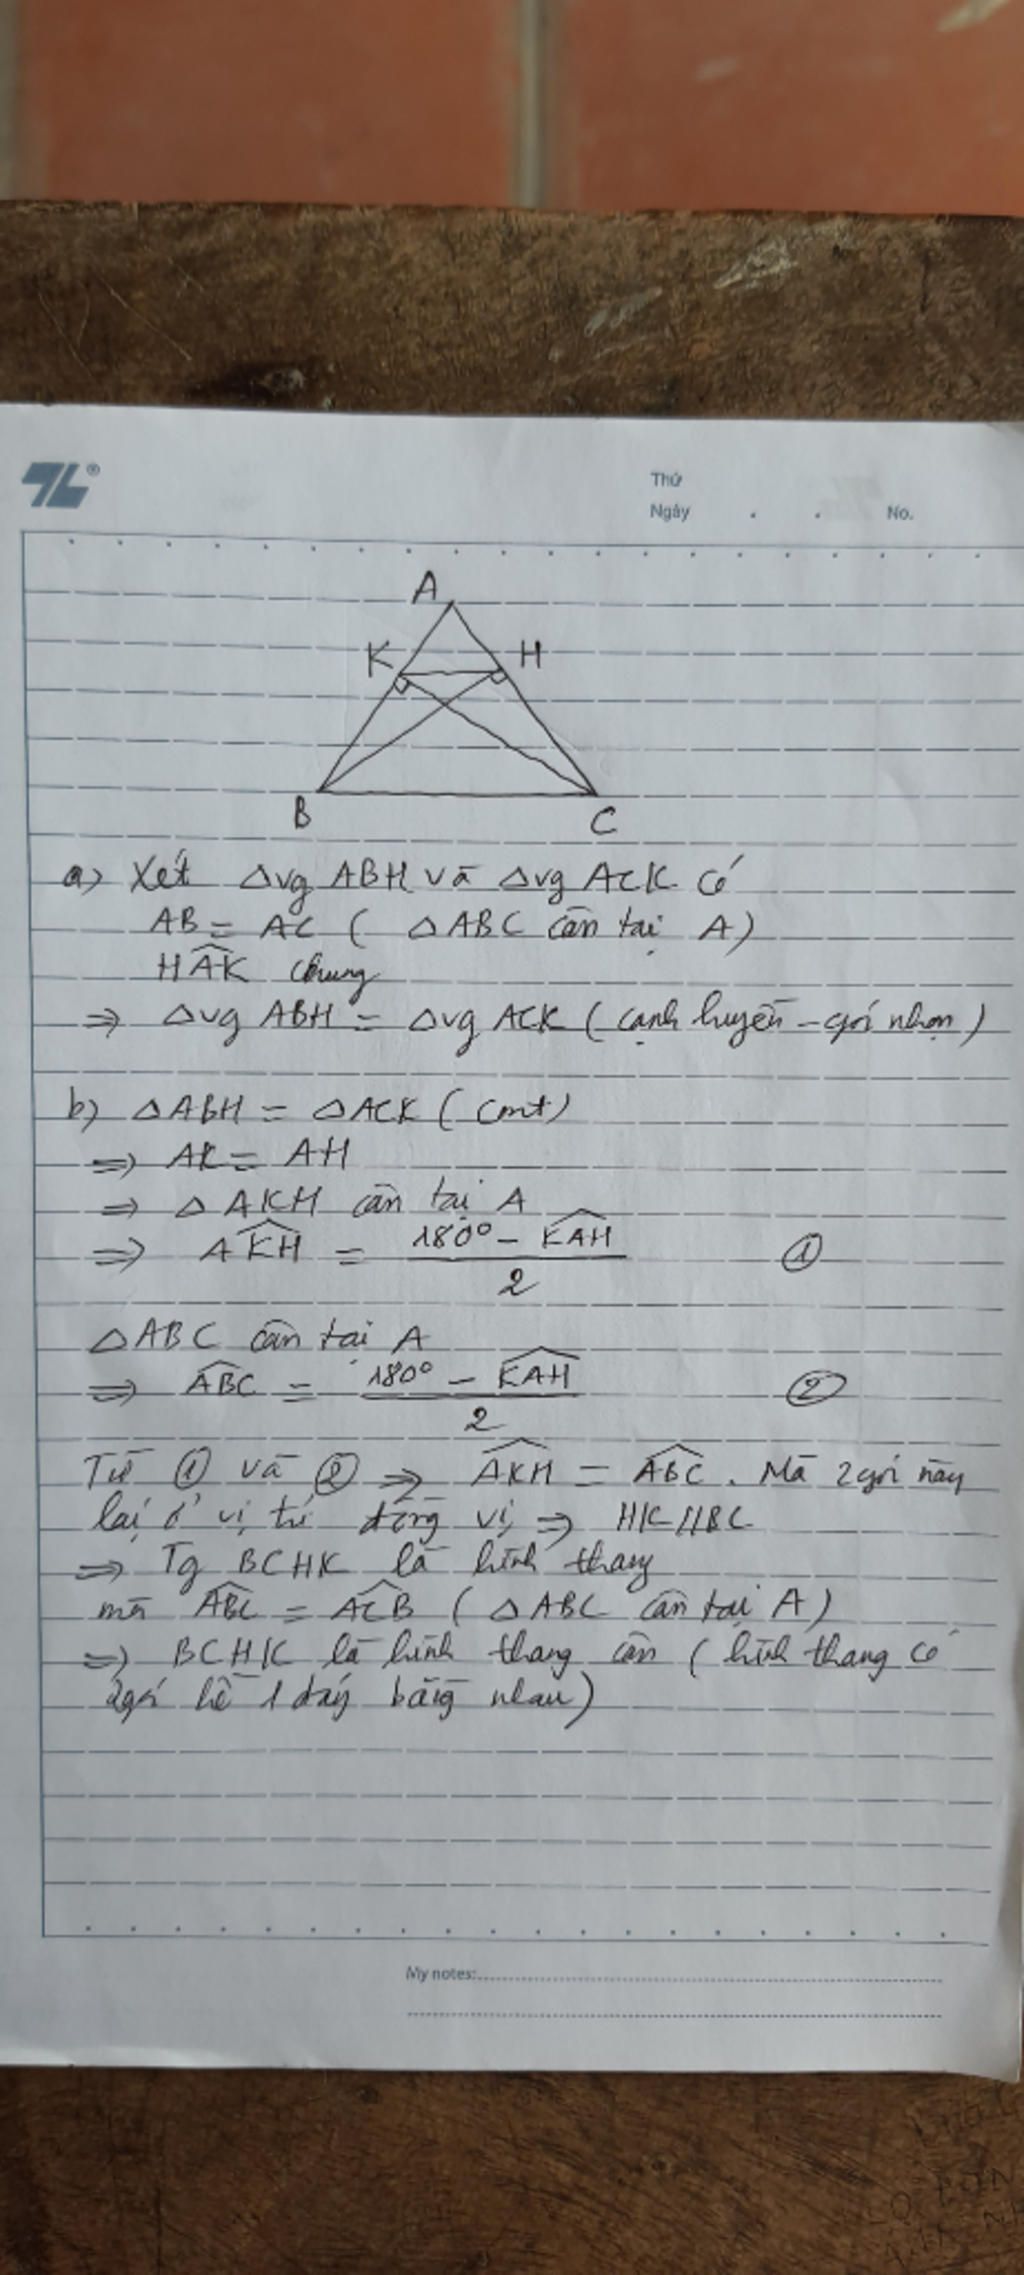 TL®
Thứ
Ngày . . No.
A
K H
B C
a) Xét Δvg ABH và Δvg ACK có
AB = AC ( Δ ABC cân tại A)
HAK chung
⇒ Δvg ABH = Δvg ACK ( cạnh huyền - góc nhọn )
b) Δ ABH = Δ ACK ( cmt)
⇒ AK = AH
⇒ Δ AKH cân tại A
⇒ AKH = (180° - KAH)/2 ①
Δ ABC cân tại A
⇒ ABC = (180° - KAH)/2 ②
Từ ① và ② ⇒ AKH = ABC . Mà 2 góc này
lại ở vị trí đồng vị ⇒ HK // BC
⇒ Tg BCHK là hình thang
mà ABC = ACB ( Δ ABC cân tại A)
⇒ BCHK là hình thang cân ( hình thang có
2 góc kề 1 đáy bằng nhau)
My notes: